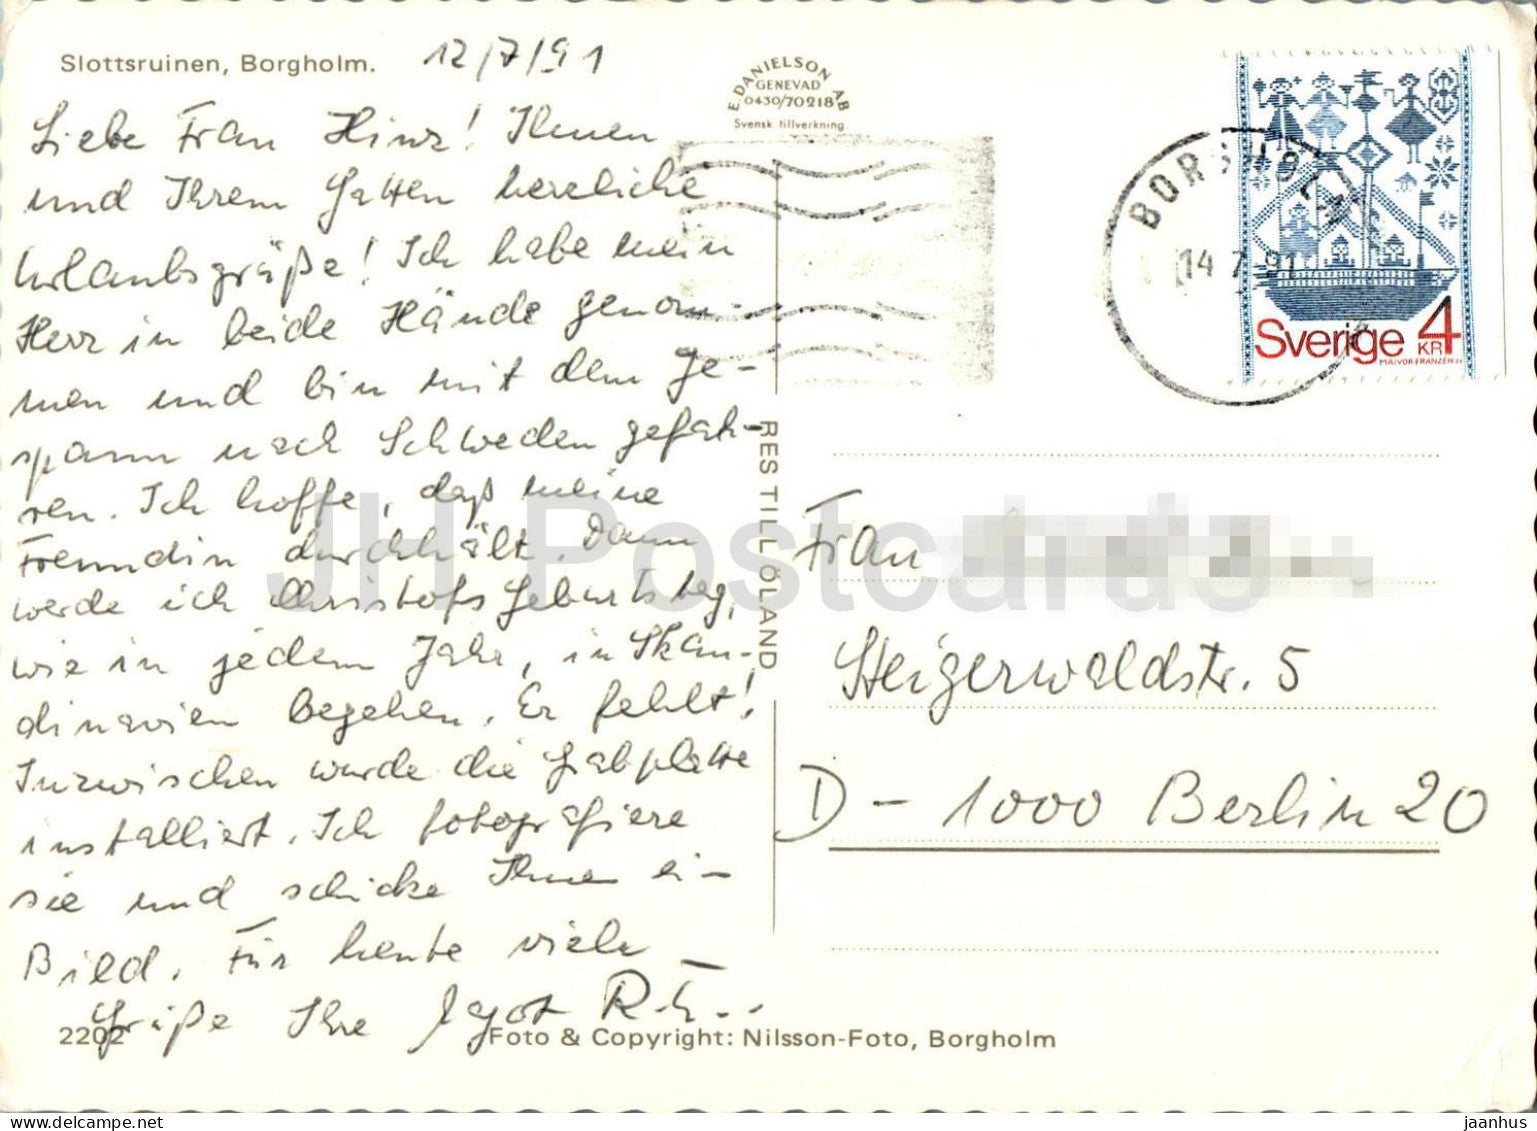 Slottsruinen, Borgholm. 12/7/91
Liebe Frau Hinz! Ihnen
und Ihrem Gatten herzliche
Urlaubsgrüße! Ich habe mein
Herz in beide Hände genom-
men und bin mit dem Ge-
spann nach Schweden gefah-
ren. Ich hoffe, daß meine
Freundin durchhält. Dann
werde ich Christofs Geburtstag,
wie in jedem Jahr, in Skan-
dinavien begehen. Er fehlt!
Inzwischen wurde die Grabplatte
installiert. Ich fotografiere
sie und schicke Ihnen ei-
Bild. Für heute viele
Grüße Ihre
2202
Foto & Copyright: Nilsson-Foto, Borgholm
E. DANIELSON AB
GENEVAD
0430/70218
Svensk tillverkning
RES TILL ÖLAND
BORGHOLM
14 7 91
Sverige 4
KR
MAJVOR FRANZÉN
Frau
Steigerwaldstr. 5
D - 1000 Berlin 20
JH Postcards
jaanhus